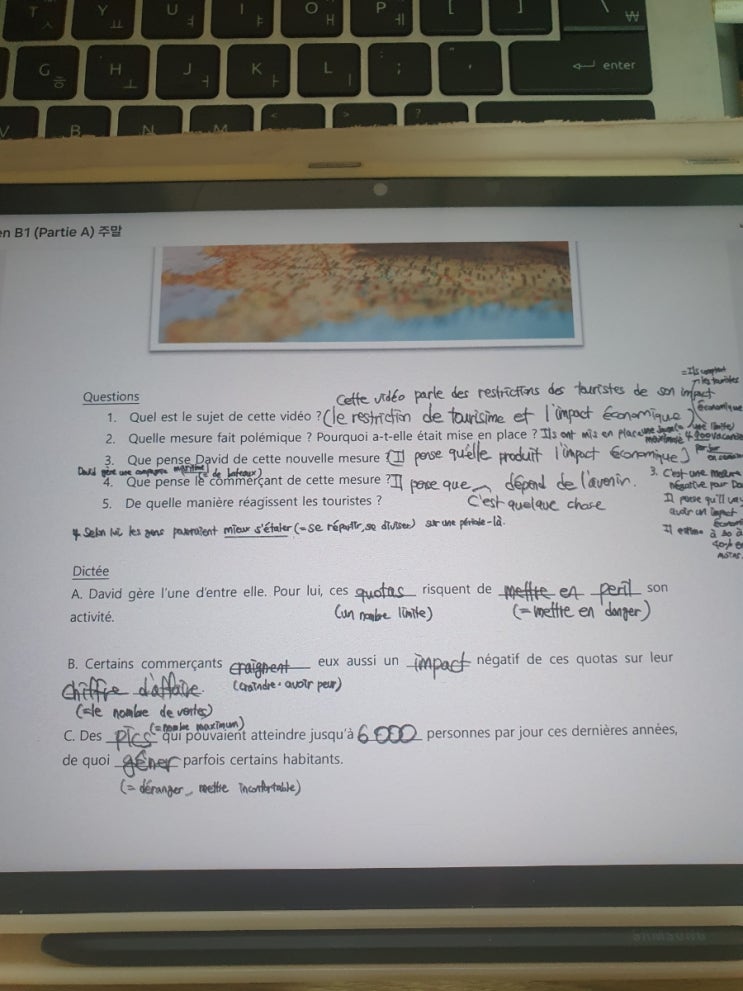 T ㅅ Y ㅛ U ㅕ I ㅑ O ㅐ P ㅔ [ ] \ ₩
G ㅎ H ㅗ J ㅓ K ㅏ L ㅣ ; ' enter
V B N M < > ?
en B1 (Partie A) 주말
Questions
Cette vidéo parle des restrictions des touristes de son impact économique
1. Quel est le sujet de cette vidéo ? (le restriction de tourisime et l'impact économique)
2. Quelle mesure fait polémique ? Pourquoi a-t-elle était mise en place ? Ils ont mis en place
3. Que pense David de cette nouvelle mesure ? (Il pense qu'elle produit l'impact économique)
David gère une compagnie maritime (= de bateaux)
4. Que pense le commerçant de cette mesure ? Il pense que dépend de l'avenir.
C'est quelque chose
5. De quelle manière réagissent les touristes ?
4. Selon lui les gens pourraient mieux s'étaler (= se répartir, se diviser) sur une période-là.
3. C'est une mesure
négative pour
Il pense qu'il
avoir un impact
Il estime à 30 à
40%
Dictée
A. David gère l'une d'entre elle. Pour lui, ces quotas risquent de mettre en peril son
activité. (un nombre limite) (= mettre en danger)
B. Certains commerçants craignent eux aussi un impact négatif de ces quotas sur leur
chiffre d'affaire. (craindre = avoir peur)
(= le nombre de ventes)
(= nombre maximum)
C. Des pics qui pouvaient atteindre jusqu'à 6000 personnes par jour ces dernières années,
de quoi gêner parfois certains habitants.
(= déranger, mettre inconfortable)
SAMSUNG